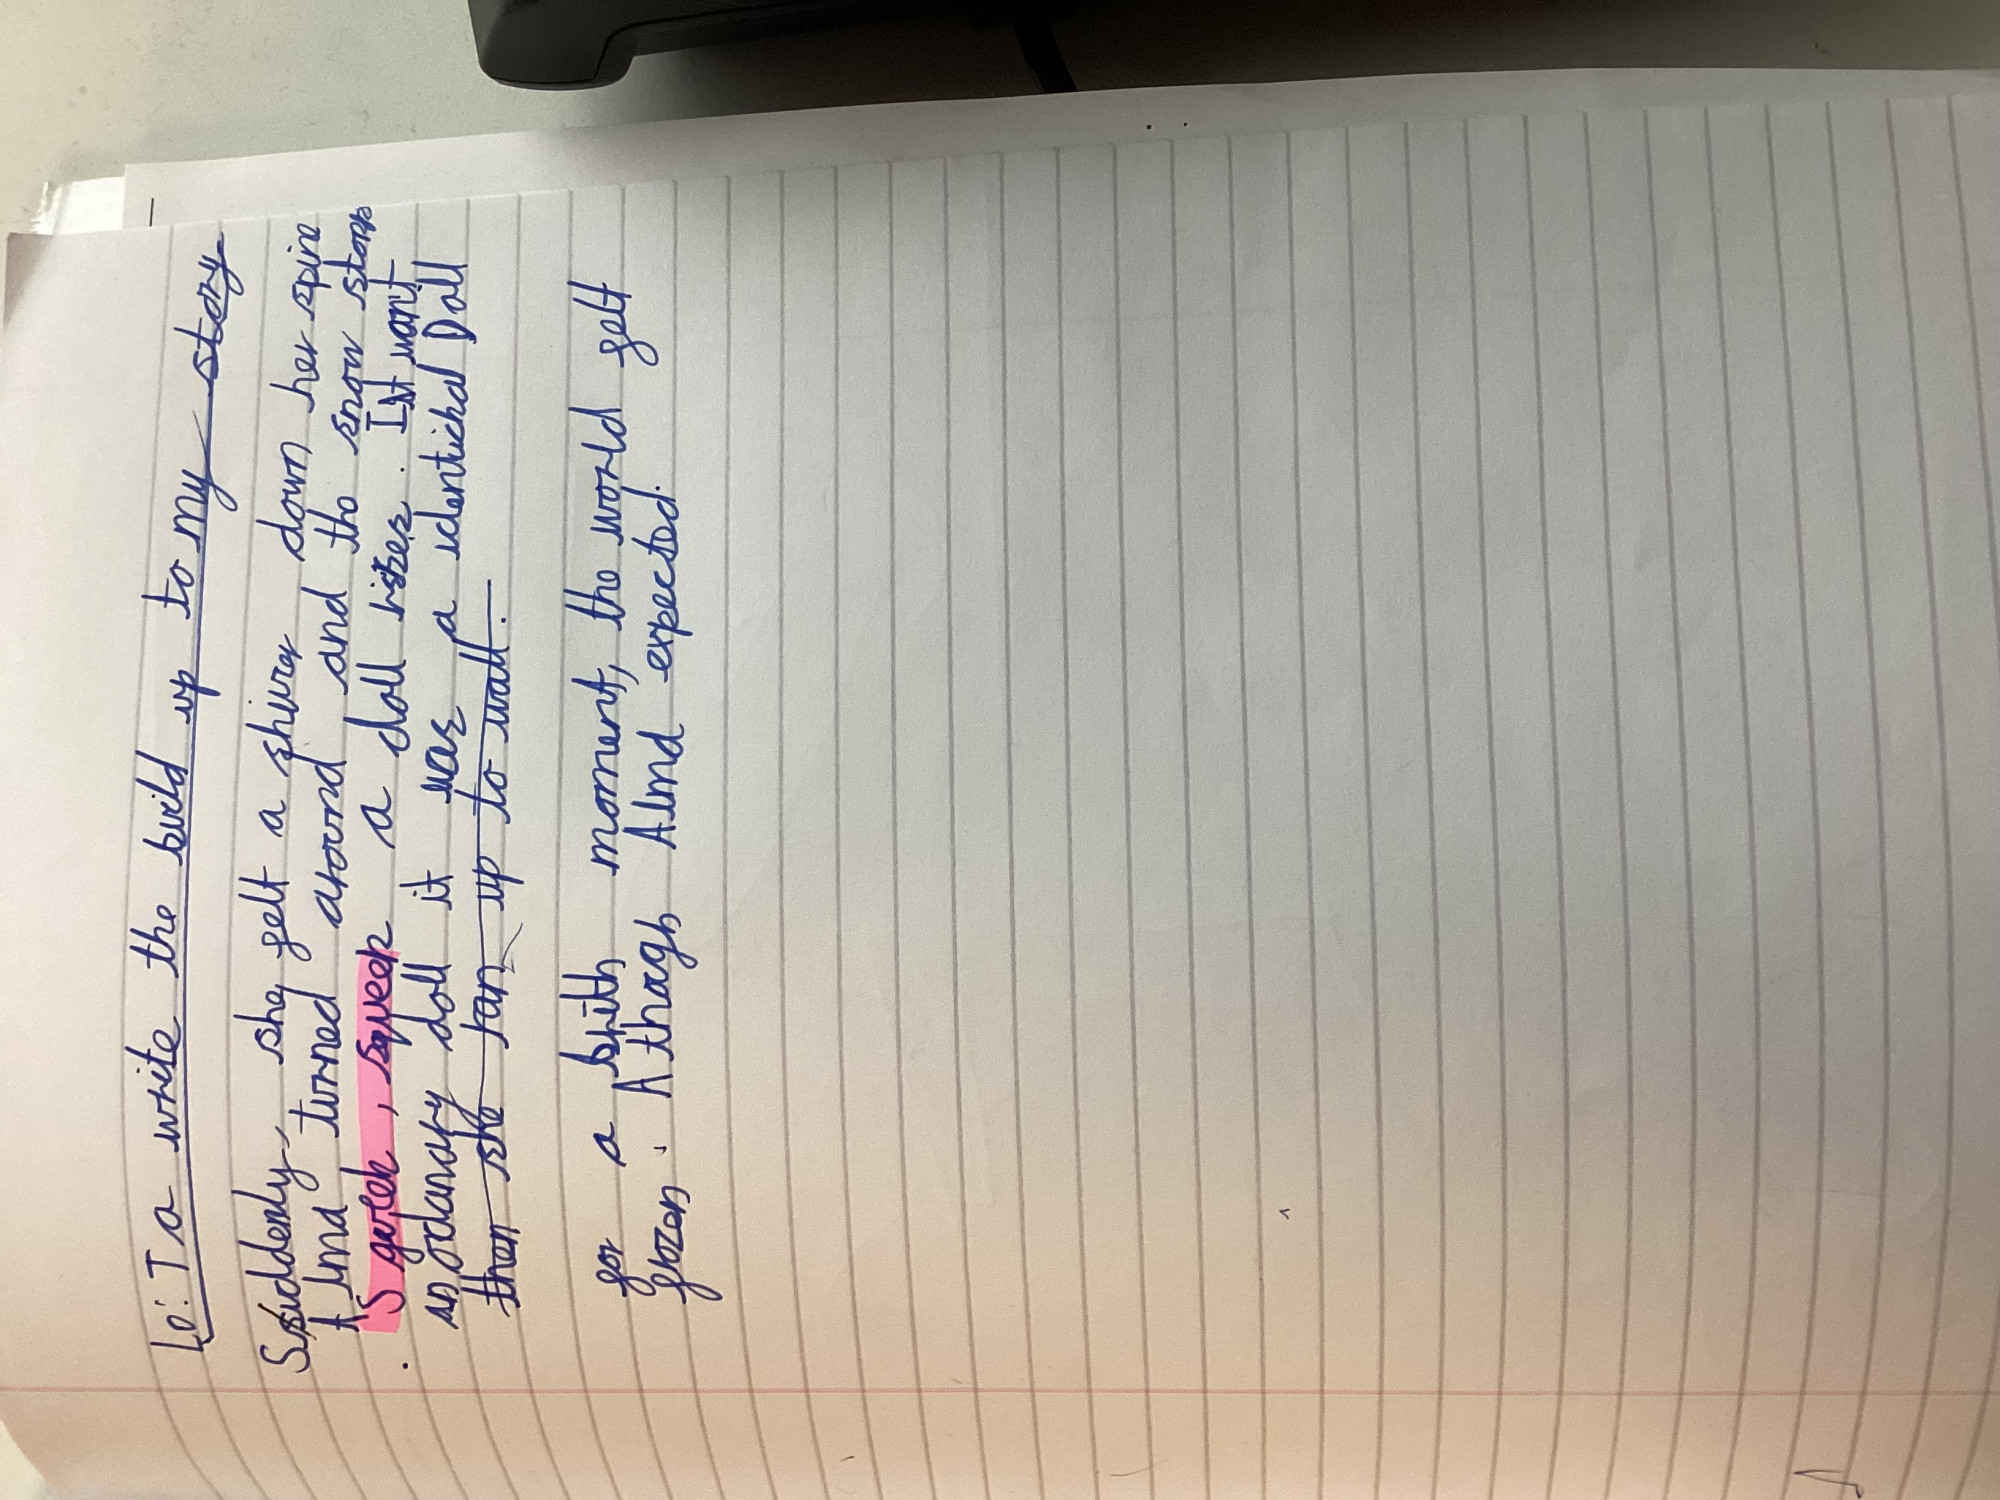 Lo: To write the build up to my story
Suddenly, she felt a shiver down her spine
Alma turned around and the snow stopp
. Sqvek, sqveek a doll rises. It want
an ordanary doll it was a identichal Doll
then she ran up to wall.
for a brith moment, the world felt
frozen. Athoagh Alma expected